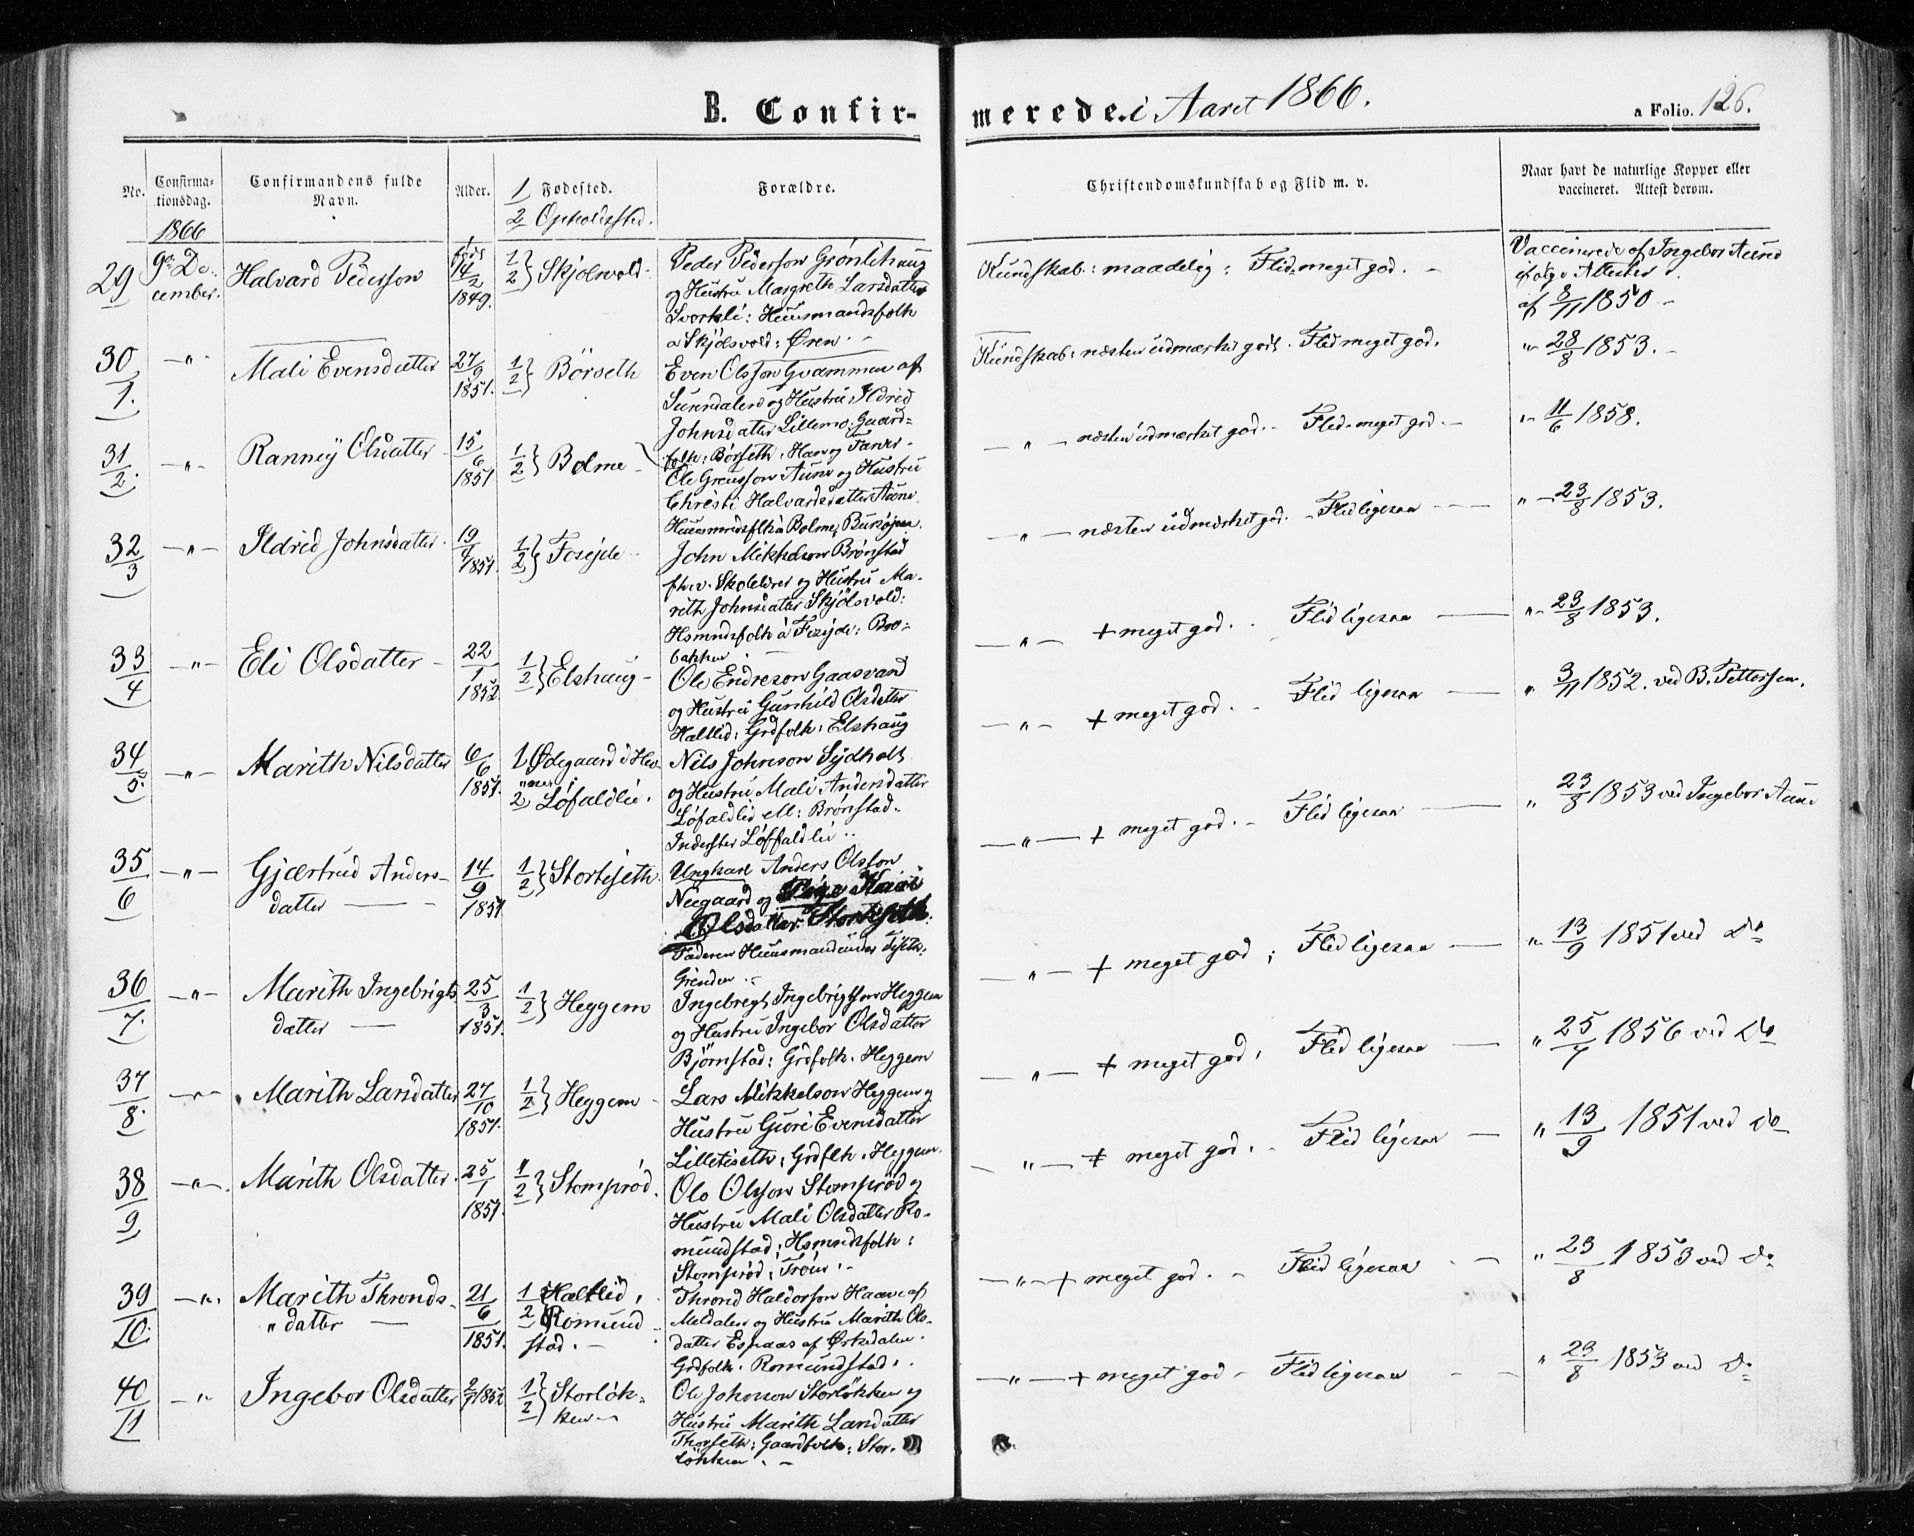 B. Confir-
merede. i Aaret 1866.
a Folio. 126.
No.
Confirma-
tionsdag.
Confirmandens fulde
Navn.
Alder.
1 Fødested.
2 Opholdssted.
Forældre.
Christendomskundskab og Flid m. v.
Naar havt de naturlige Kopper eller
vaccineret. Attest derom.
1866
29
9de De-
cember.
Halvard Pederson
født
14/2
1849.
1/2 } Skjølsvold
Peder Pederson Grønlihaug
og Hustru Margreth Larsdatter
Svorkli: Huusmandsfolk
a Skjølsvold: Øren. -
Kundskab: maadelig; Flid meget god. -
Vaccinerede af Ingebor Aune
ifølge Attester
af 8/11 1850 -
30/1.
-"-
Mali Evensdatter
27/9
1851.
1/2 } Börseth
Even Olsson Gvammen af
Sunndalen og Hustru Ildrid
Johnsdatter Lillemo: Gaard-
folk: Børseth.
Kundskab: næsten udmærket god. Flid meget god.
" 28/8 1853. -
31/2.
-"-
Ranney Olsdatter
15/6
1851
1/2 } Bolme
Ole Aune og Hustru
Christi Halvardsdatter Aune
Huusmndsfolk à Bolme;
- " - næsten udmærket god. - Flid meget god. -
" 11/6 1858.
32/3
-"-
Ildrid Johnsdatter
19/4
1851.
1/2 }
John Mikkelson Brønstad
fhv. Skolelærer og Hustru Ma-
rith Johnsdatter Skjølsvold:
Hsmndsfolk à Bro-
bakken. -
- " - næsten udmærket god. - Flid ligesaa -
" - 23/8 1853.
33/4
-"-
Eli Olsdatter
22/1
1852
1/2 } Elshaug -
Ole Endreson Gaasvand
og Hustru Gunhild Olsdatter
Haltlid: Grdfolk: Elshaug
- " - + meget god. - Flid ligesaa -
" - 23/8 1853.
34/5.
-"-
Marith Nilsdatter
6/6
1851.
1, Ødegaard i Hev-
ne
2, Løfaldlie.
Nils Johnson Sydhalt
og Hustru Mali Andersdatter
Løfaldlid ell: Brønstad.
Inderster Løffaldlie. -
- " - + meget god. - Flid ligesaa -
" 3/11 1852. ved B. Pettersen.
35/6
-"-
Gjærtrud Anders-
datter -
14/9
1851
1/2 } Stortiseth
Ungkarl Anders Olsson
Neegaard og Pige Kari
Olsdatter Stortiseth.
Faderen Huusmand under
Grinden. -
- " - + meget god. - Flid ligesaa -
" 23/8 1853 ved Ingebor Aune
36/7.
-"-
Marith Ingebrigts
datter -
25/3
1851.
1/2 } Heggem
Ingebregt Ingebrigtson Heggem
og Hustru Ingebor Olsdatter
Bjørnstad: Grdfolk. Heggem
- " - + meget god; Flid ligesaa -
" 13/9 1851 ved Do
37/8.
-"-
Marith Larsdatter
27/10
1851.
1/2 } Heggem -
Lars Mikkelson Heggem og
Hustru Guri Evensdatter
Lilletiseth: Grdfolk. Heggem.
- " - + meget god, Flid ligesaa -
" 25/7 1856 ved Do
38/9
-"-
Marith Olsdatter
25/1
1851.
1/2 } Stomprød.
Ole Olsson Stomprød og
Hustru Mali Olsdatter Ro-
mundstad: Hsmndsfolk:
Stomprød: Trøen. -
- " - + meget god. - Flid ligesaa -
" 13/9 1851 ved Do
39/10.
-"-
Marith Thronds-
" datter -
21/6
1851.
1 Haltlid,
2 Romund
stad. -
Thrond Haldorson Haave af
Meldalen og Hustru Marith Ols-
datter Espaas af Ørkedalen.
Grdfolk. Romundstad.
- " - + meget god. - Flid ligesaa -
" 23/8 1853 ved Do
40/11
-"-
Ingebor Olsdatter
2/7 1852
1/2 } Storløk-
ken -
Ole Johnson Storløkken og
Hustru Marith Larsdatter
Thorseth: Gaardfolk: Stor-
løkken. -
- " - + meget god - Flid ligesaa - -
" 23/8 1853 ved Do